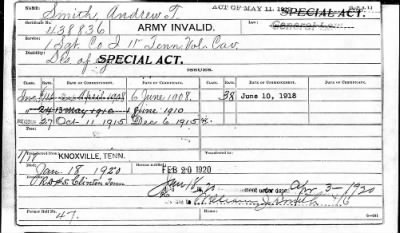 NAME: Smith, Andrew T. ACT OF MAY 11, 1912 SPECIAL ACT.
Certificate No. 438836 ARMY INVALID. Law: General Law
Service: Sgt Co I 1st Tenn Vol. Cav.
Disability: Dis of SPECIAL ACT.
ISSUES.
CLASS. RATE. DATE OF COMMENCEMENT. DATE OF CERTIFICATE. CLASS. RATE. DATE OF COMMENCEMENT. DATE OF CERTIFICATE.
Inc April 1908 6 June 1908. 38 June 10, 1918
24 13 May 1910 1 June 1910
27 Oct 11 1915 Dec 6 1915
KNOXVILLE, TENN.
Jan 18 1920 FEB 20 1920
Clinton Tenn Jan 18 20 Apr 3 - 1920
Former Roll No.
47.